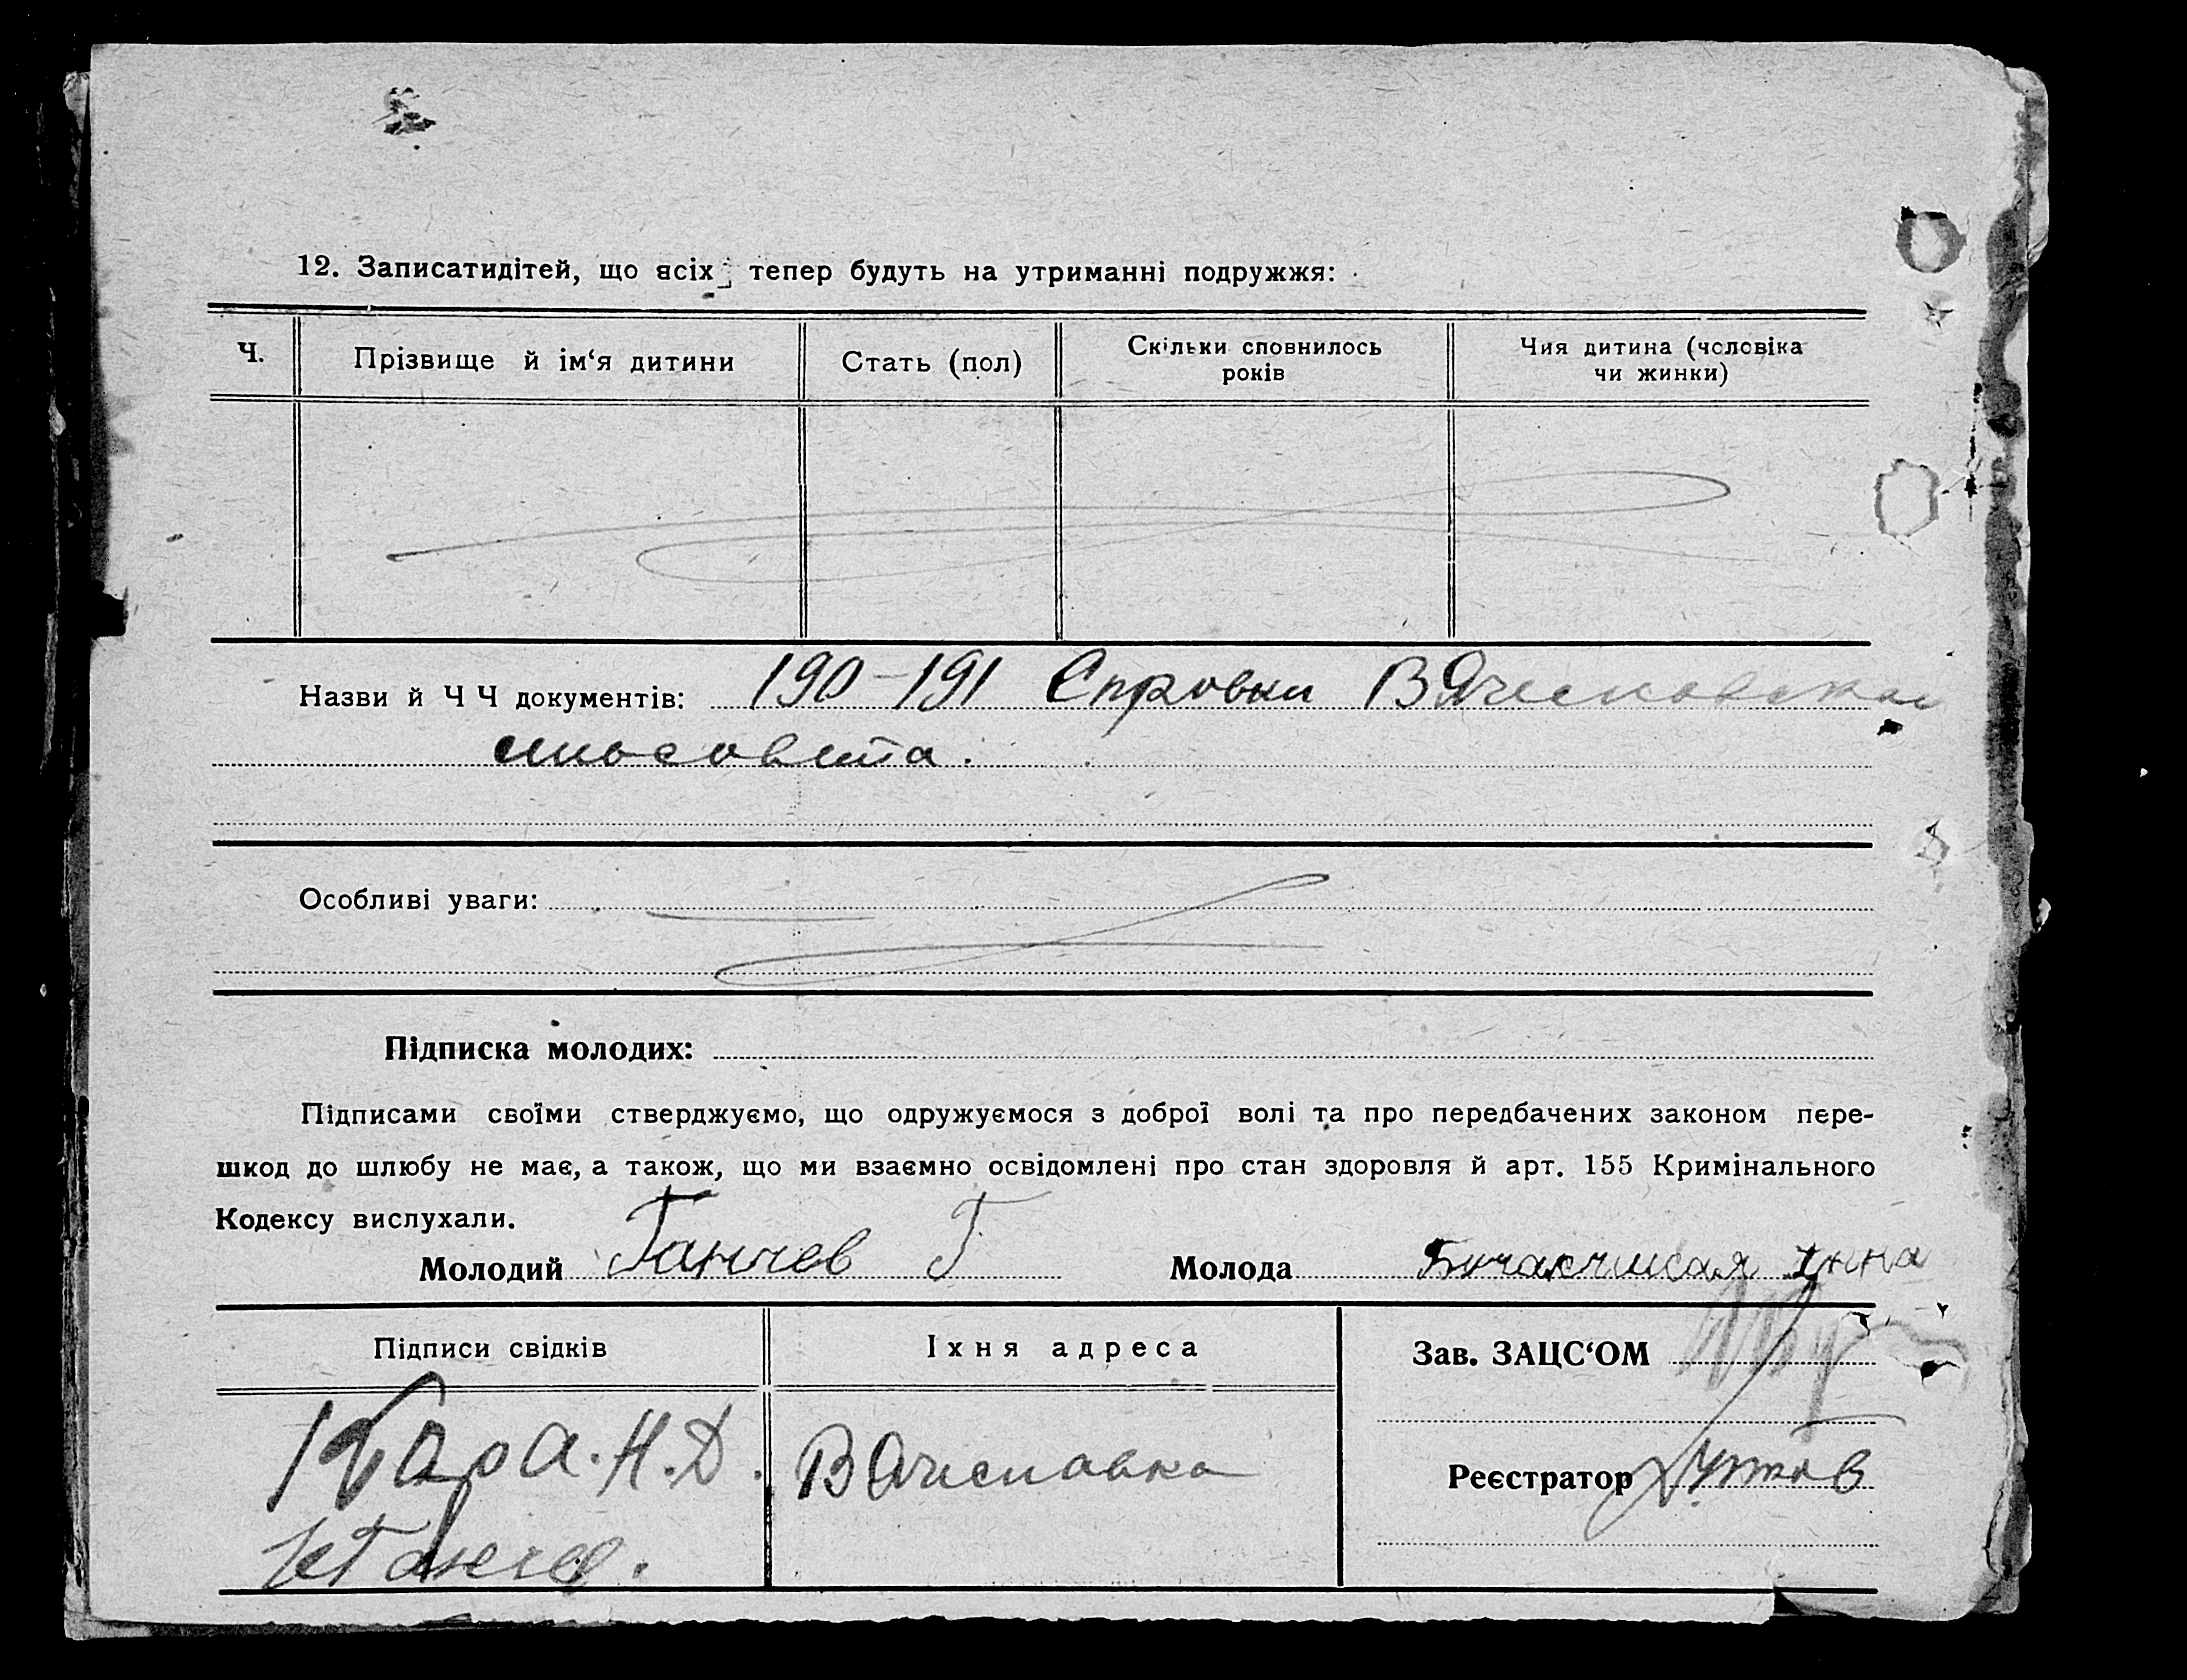 12. Записатидітей, що всіх тепер будуть на утриманні подружжя:
Ч.
Прізвище й ім‘я дитини
Стать (пол)
Скільки сповнилось
років
Чия дитина (чоловіка
чи жинки)
Назви й Ч Ч документів: 190-191 Справки ВЯчеславска
Особливі уваги:
Підписка молодих:
Підписами своїми стверджуємо, що одружуємося з доброї волі та про передбачених законом пере-
шкод до шлюбу не має, а також, що ми взаємно освідомлені про стан здоровля й арт. 155 Кримінального
Кодексу вислухали.
Молодий Ганчев Г Молода Анна
Підписи свідків
Їхня адреса
Зав. ЗАЦС‘ОМ
Кара. Н. Д.
ВЯчеславка
Реєстратор
Ганчев.